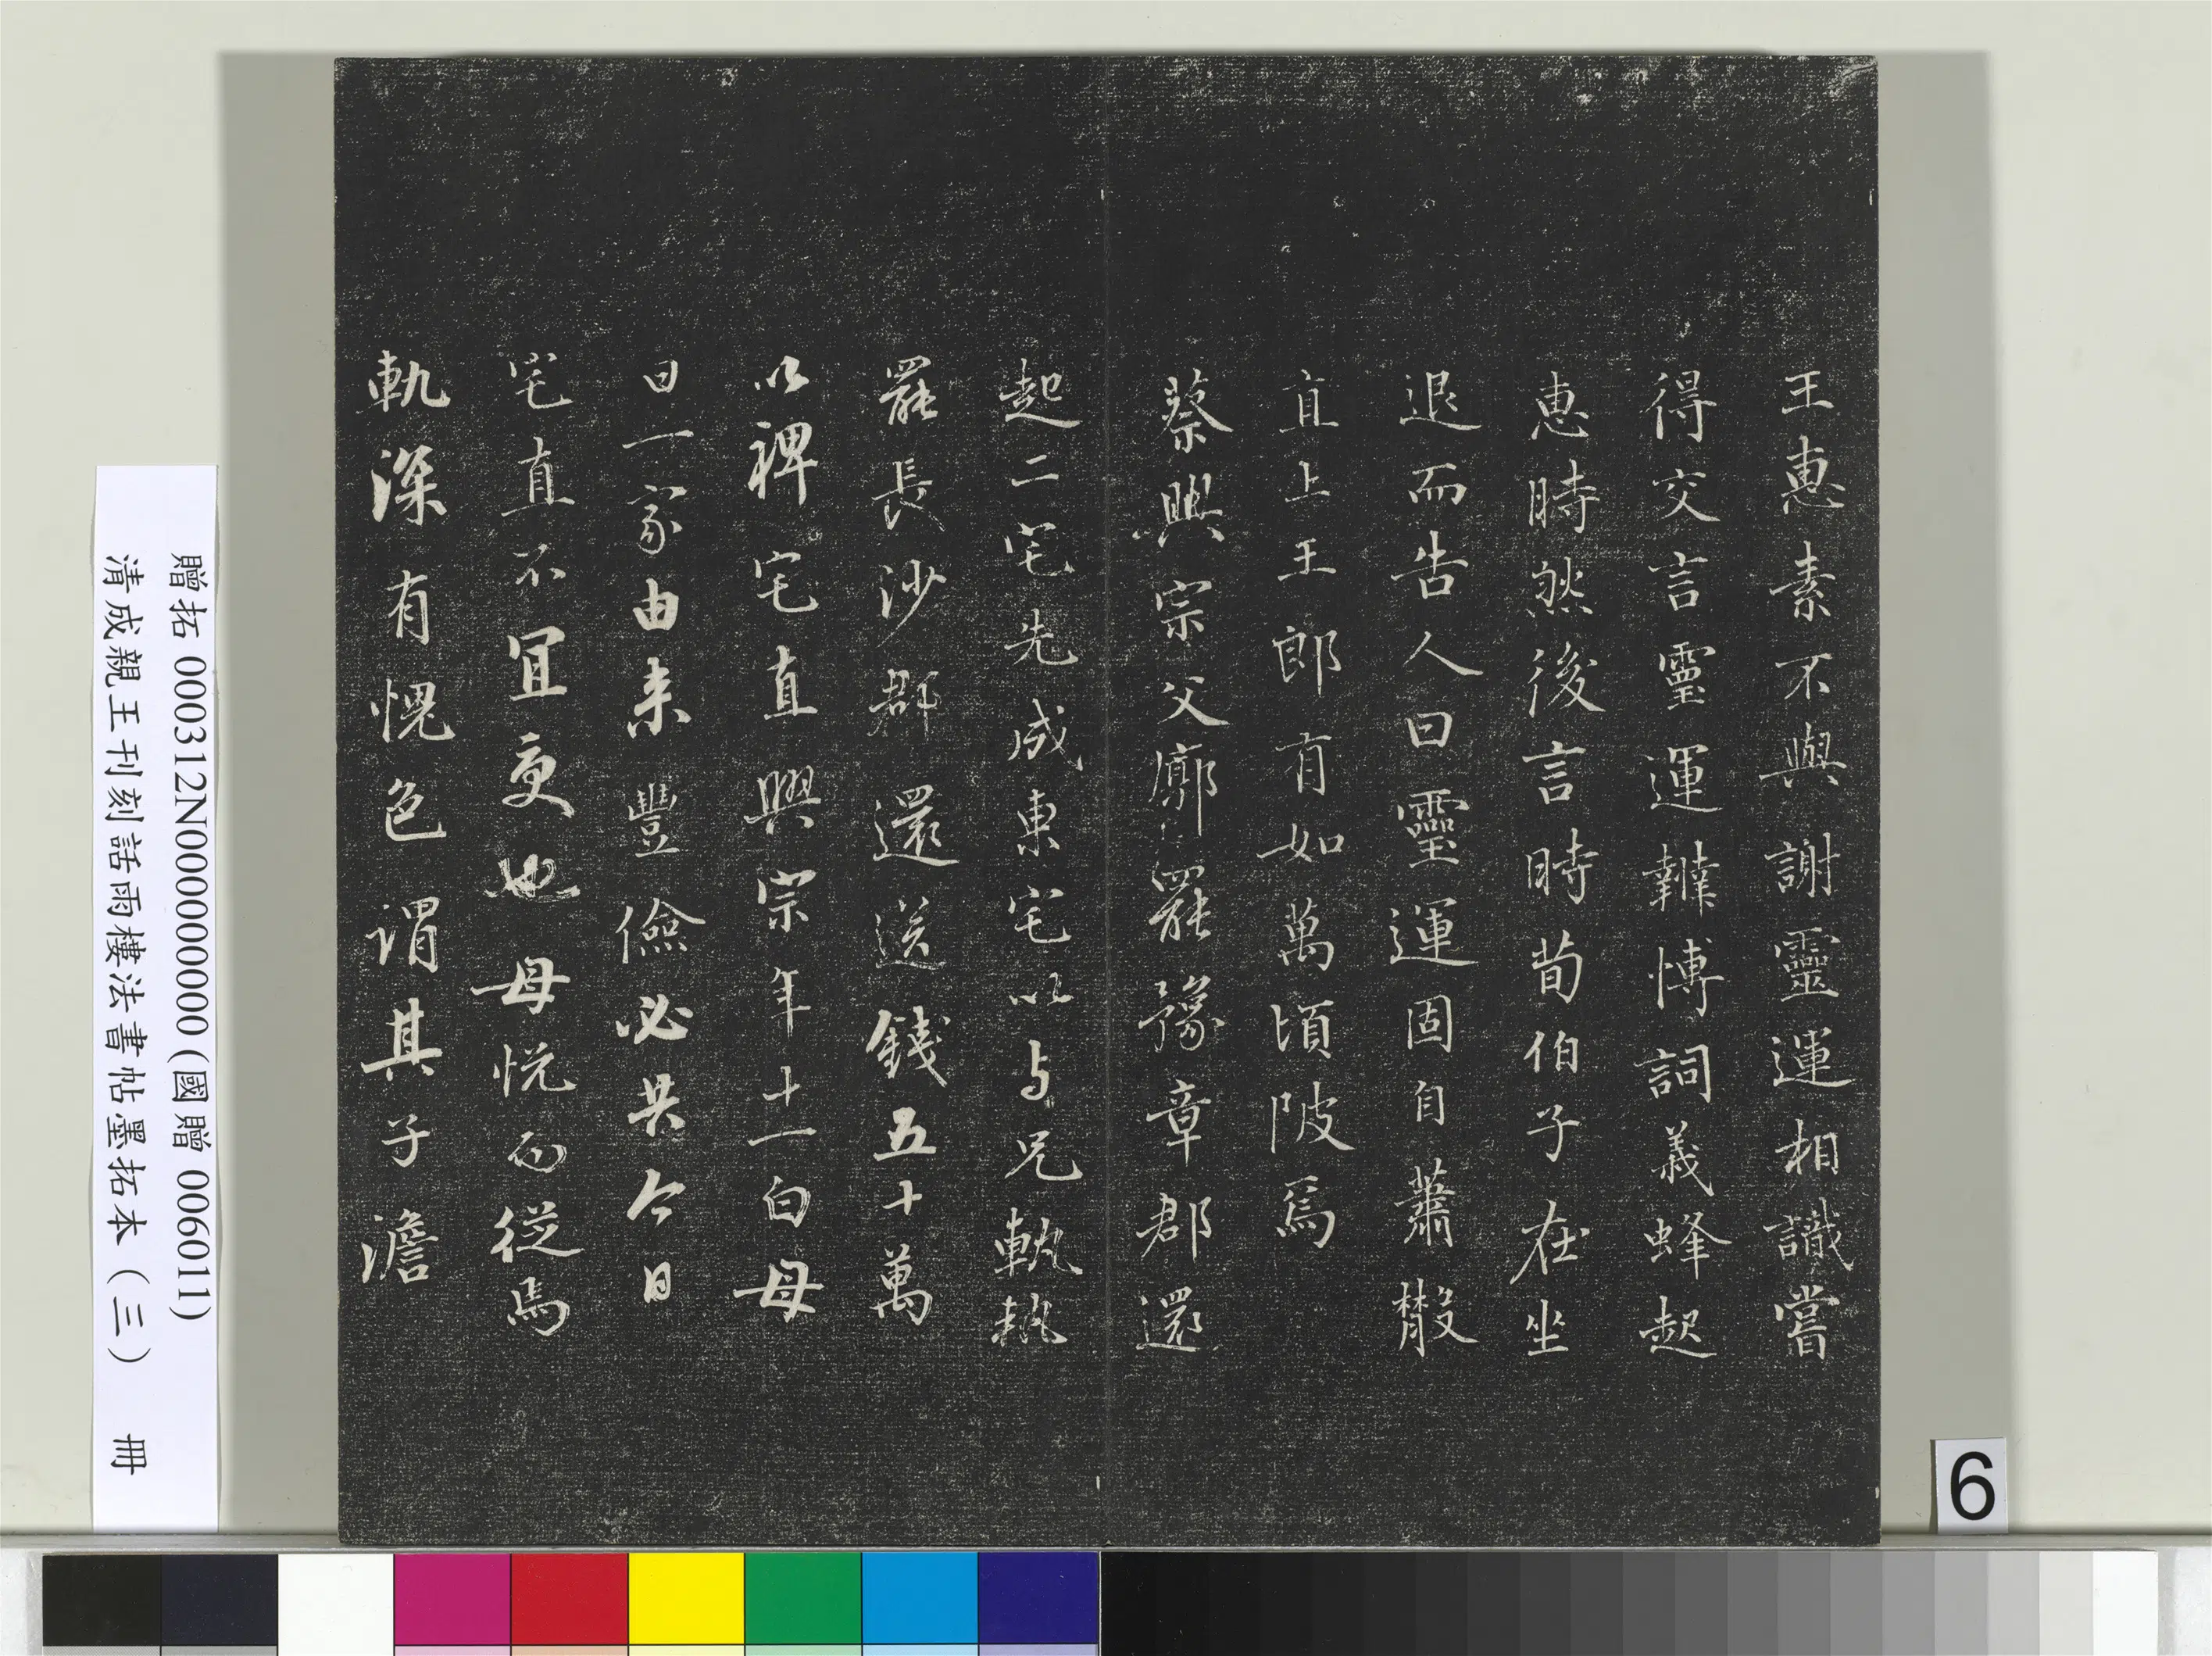 王惠素不與謝靈運相識嘗
得交言靈運辯博詞義蜂起
惠時然後言時荀伯子在坐
退而告人曰靈運固自蕭散
直上王郎有如萬頃陂焉
蔡興宗父廓罷豫章郡還
起二宅先成東宅以与兄軌軌
罷長沙郡還送錢五十萬
以裨宅直興宗年十一白母
曰一家由来豐儉必共今日
宅直不宜受也母悅而從焉
軌深有愧色謂其子澹
贈拓 000312N000000000 (國贈 006011)
清成親王刊刻詒雨樓法書帖墨拓本（三） 冊
6